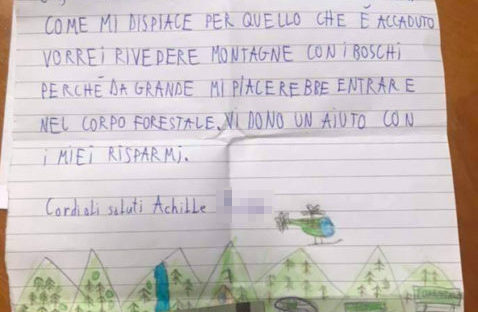 COME MI DISPIACE PER QUELLO CHE È ACCADUTO
VORREI RIVEDERE MONTAGNE CON I BOSCHI
PERCHÉ DA GRANDE MI PIACEREBBE ENTRARE
NEL CORPO FORESTALE. VI DONO UN AIUTO CON
I MIEI RISPARMI.
Cordiali saluti Achille